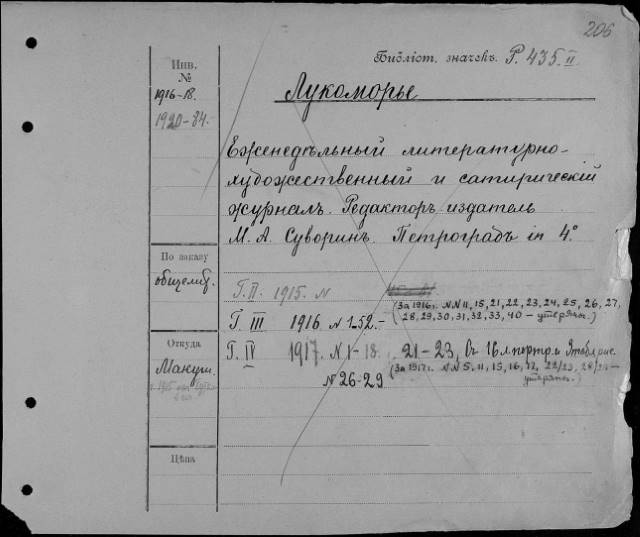 206
Библіот. значекъ. Р. 435 II
Инв.
№
1916-18.
1920-84.
Лукоморье
Еженедѣльный литературно-
художественный и сатирическій
журналъ. Редакторъ издатель
М. А. Суворинъ. Петроградъ in 4°.
По заказу
общелит.
Г. II. 1915. N
Г. III 1916 N 1-52.-
(За 1916г. N N 11, 15, 21, 22, 23, 24, 25, 26, 27,
28, 29, 30, 31, 32, 33, 40 – утеряны.)
Откуда
Макуш.
Г. IV 1917. N 1-18. 21-23, въ
N 26-29
(За 1917г. N N 5, 11, 15, 16, 17, 22/23, 28/29 –
утеряны.)
Цѣна